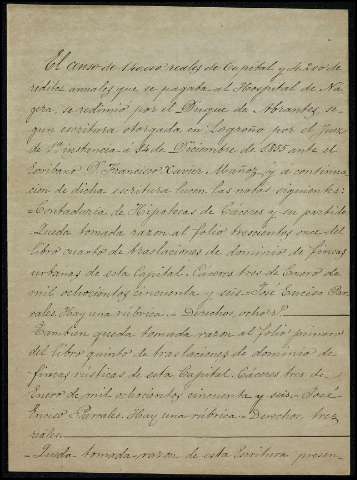 El censo de 140.000 reales de Capital y 4.200 de
reditos anuales que se pagaba al Hospital de Na
gera, se redimió por el Duque de Abrantes, se-
gun escritura otorgada en Logroño por el Juez
de 1ª instancia a 24 de Diciembre de 1855 ante el
Escribano D. Francisco Xavier Muñoz, y a continua
cion de dicha escritura lucen las notas siguientes:
Contaduria de Hipotecas de Cáceres y su partido
Queda tomada razon al folio trescientos once del
libro cuarto de traslaciones de dominio de fincas
urbanas de esta Capital. Cáceres tres de Enero de
mil ochocientos cincuenta y seis. José Enciso Par
rales. Hay una rúbrica. Derechos, ocho rs.
Tambien queda tomada razon al folio primero
del libro quinto de traslaciones de dominio de
fincas rústicas de esta Capital. Cáceres tres de
Enero de mil ochocientos cincuenta y seis. José
Enciso Parrales. Hay una rúbrica. Derechos, tres
reales.
Queda tomada razon de esta Escritura presen-